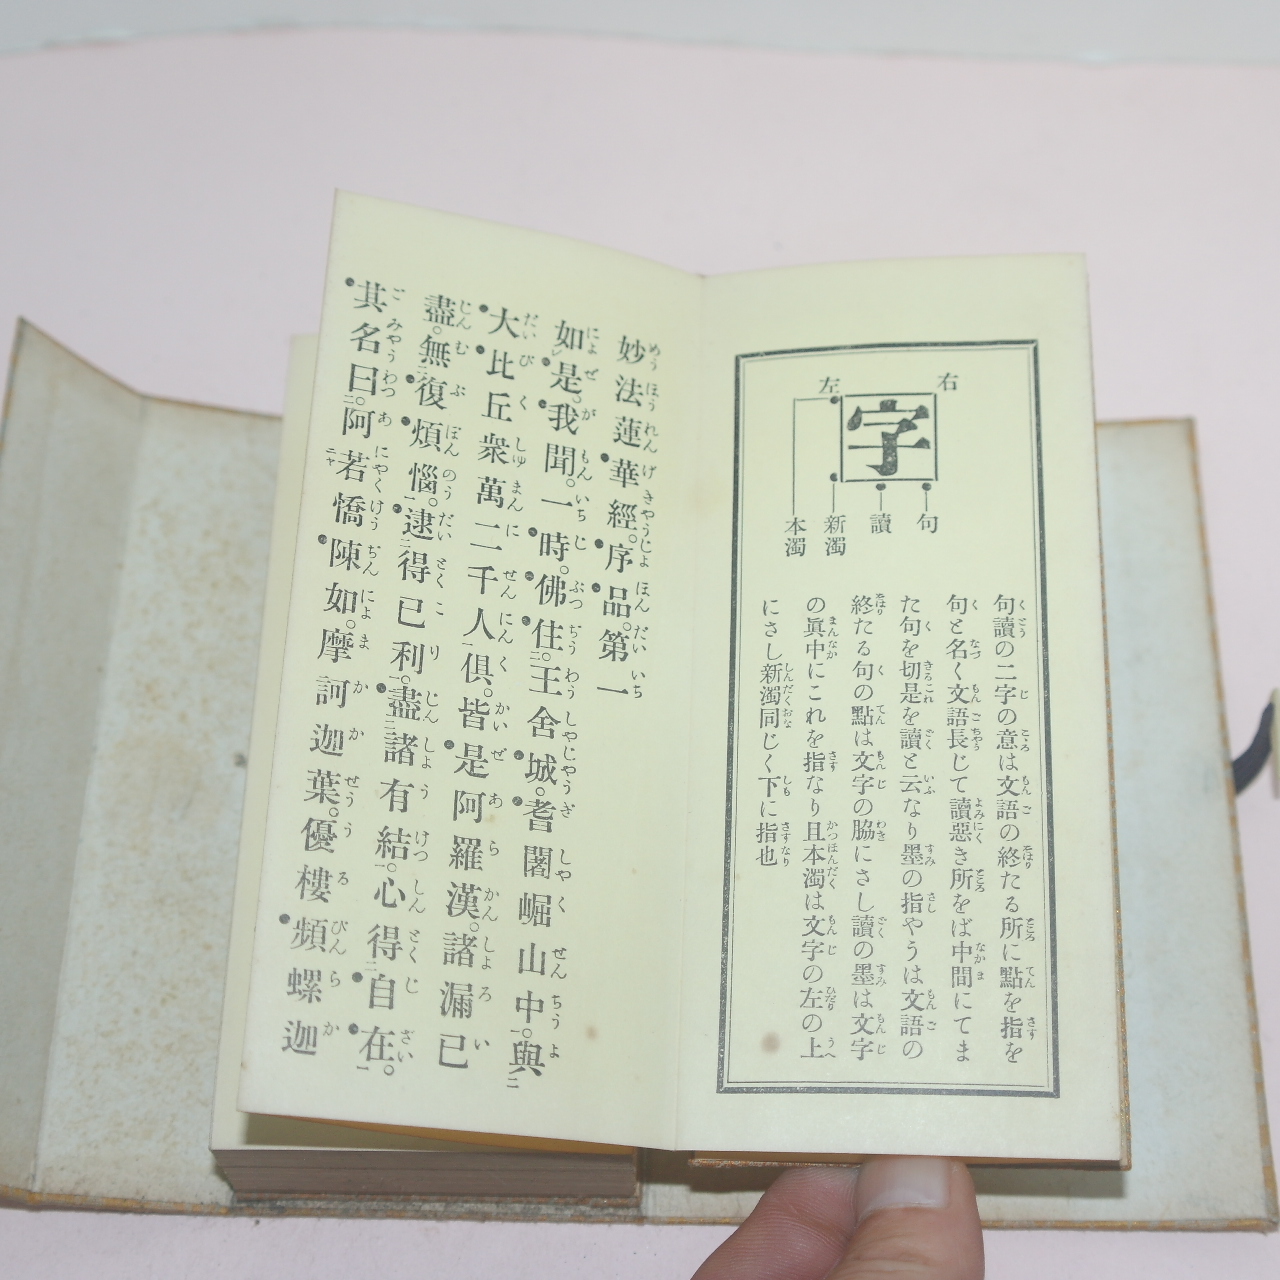 右
左
字
句
讀
新濁
本濁
句讀の二字の意は文語の終たる所に點を指を
句と名く文語長じて讀惡き所をば中間にてま
た句を切是を讀と云なり墨の指やうは文語の
終たる句の點は文字の脇にさし讀の墨は文字
の眞中にこれを指なり且本濁は文字の左の上
にさし新濁同じく下に指也
妙法蓮華經。序品。第一
如是。我聞。一時。佛住。王舍城。耆闍崛山中。與
大比丘衆萬二千人俱。皆是阿羅漢。諸漏已
盡。無復煩惱。逮得已利。盡諸有結。心得自在。
其名曰。阿若憍陳如。摩訶迦葉。優樓頻螺迦